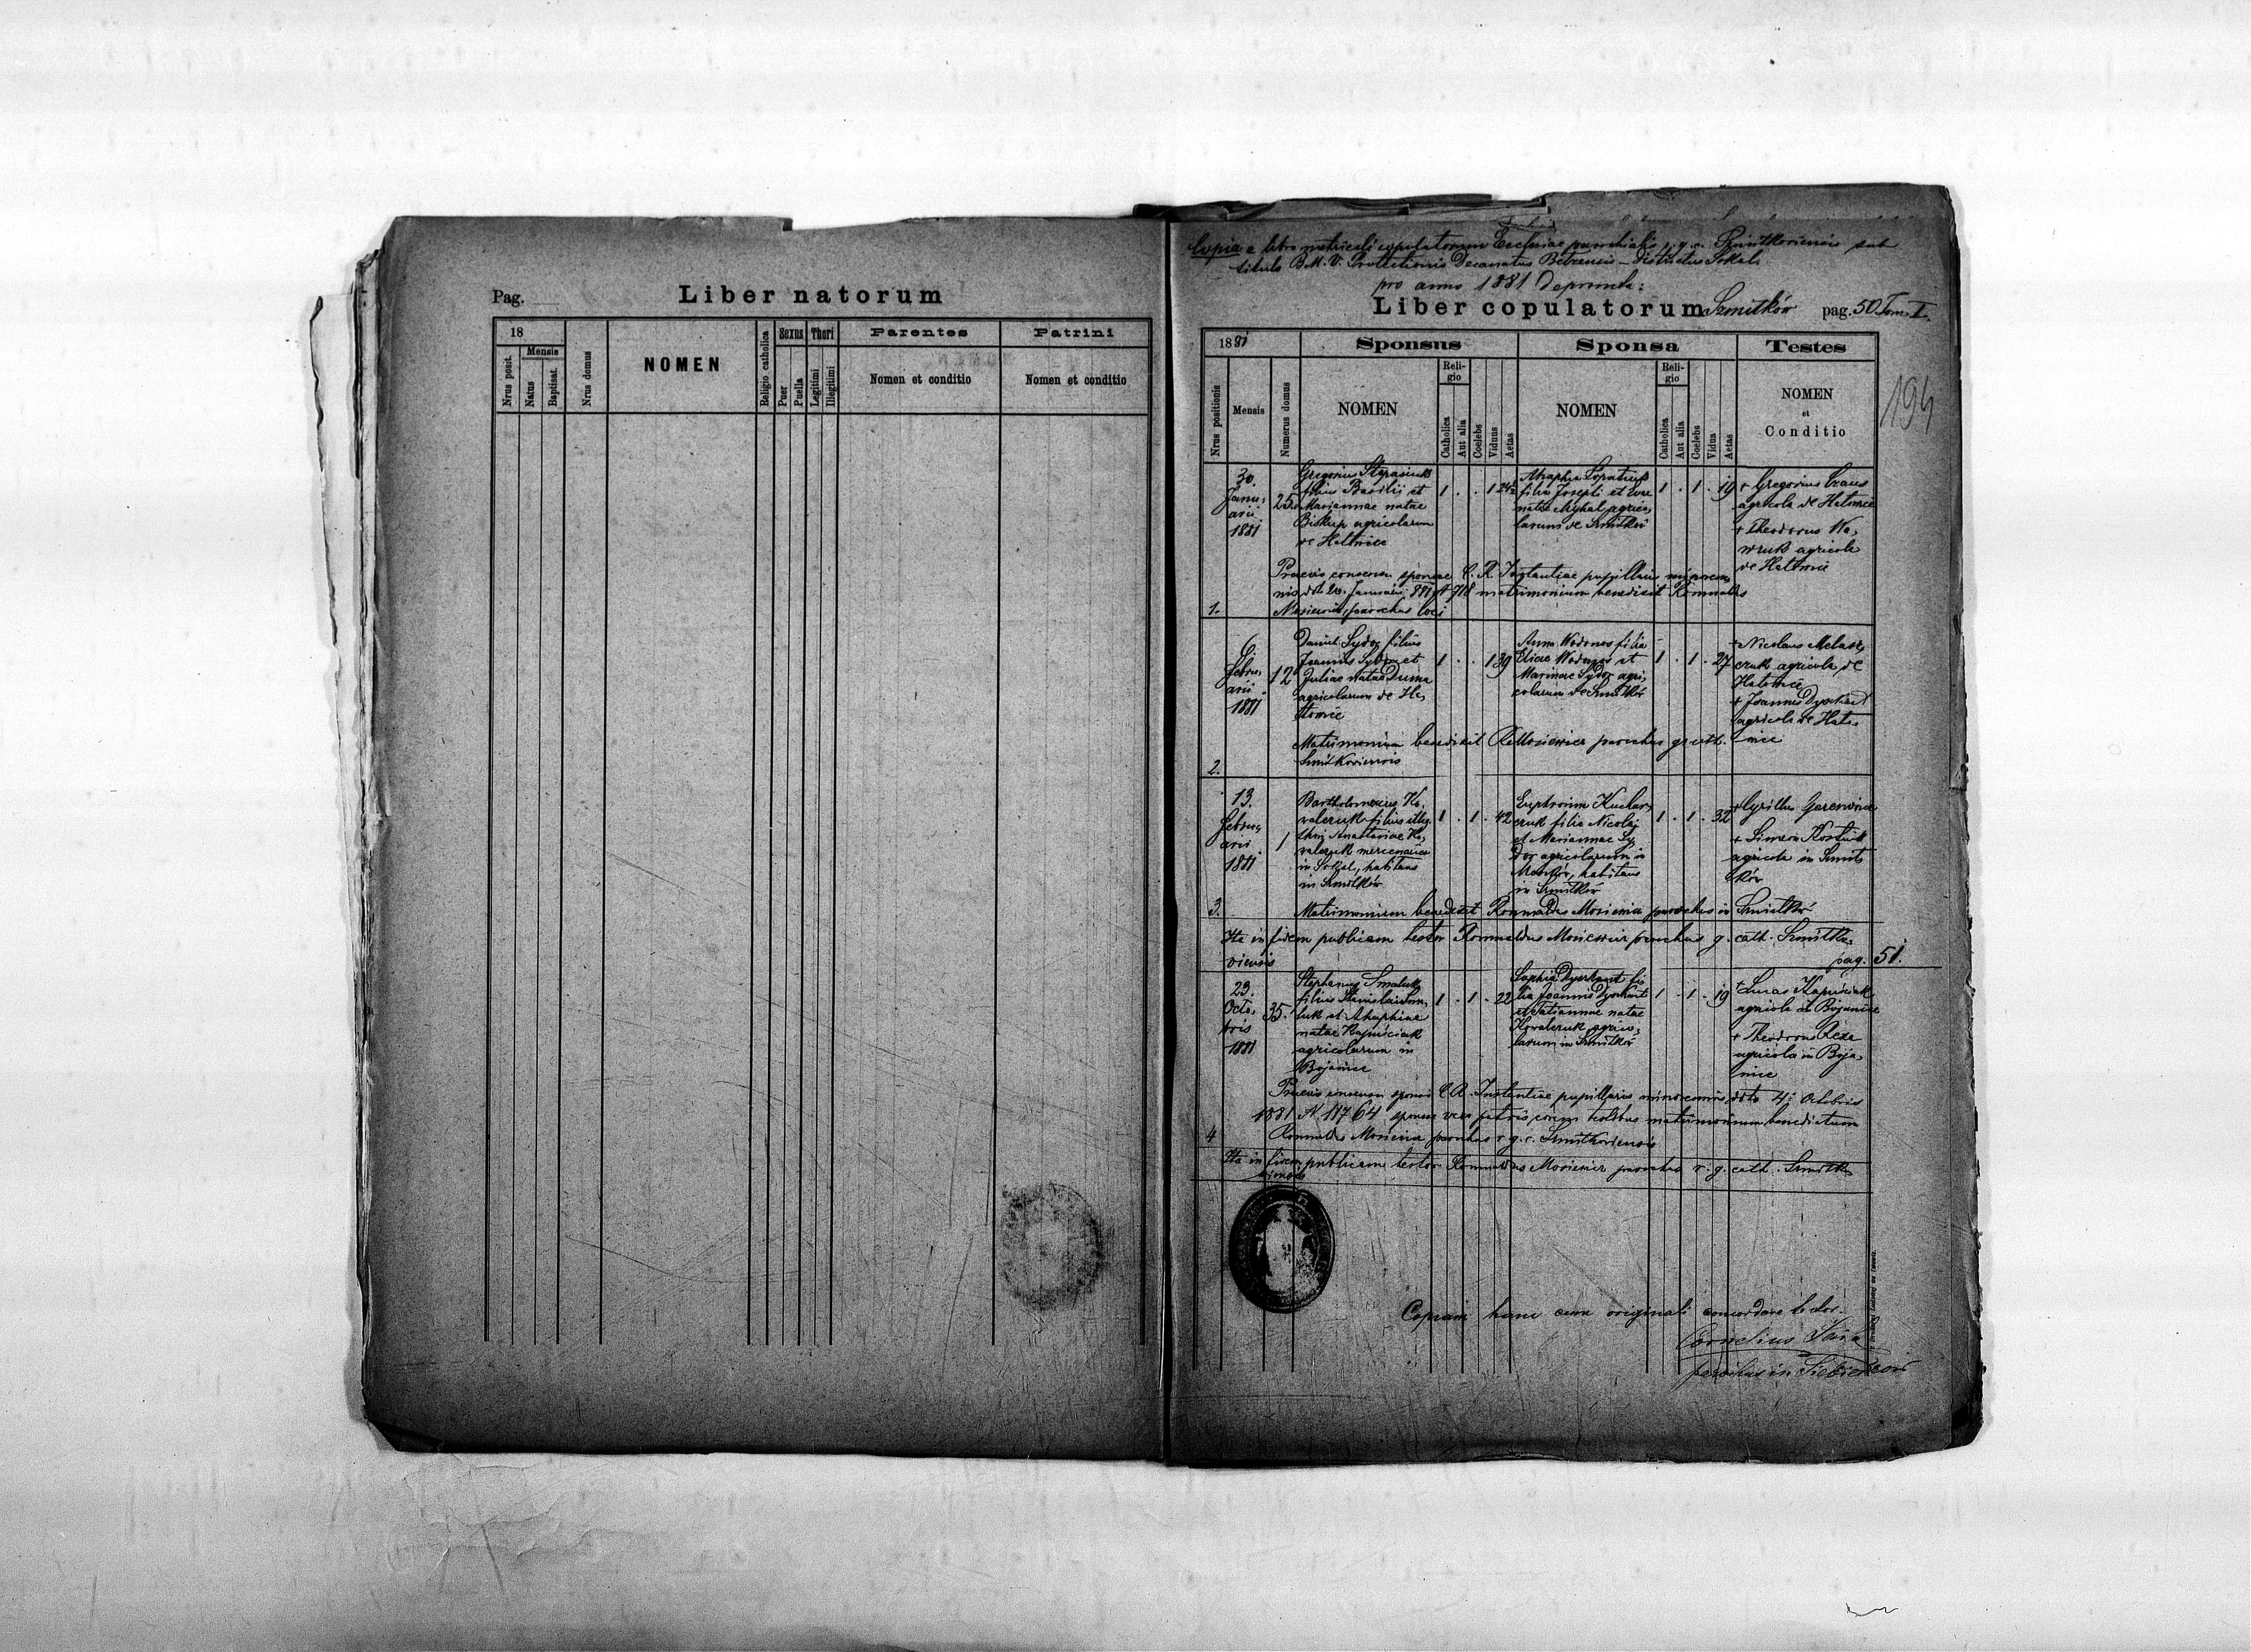 Pag.
Liber natorum
18
Mensis
Nrus posit.
Natus
Baptisat.
Nrus domus
NOMEN
Religio catholica
Sexus
Puer
Puella
Thori
Legitimi
Illegitimi
Parentes
Nomen et conditio
Patrini
Nomen et conditio
Copia e libro metricali copulatorum Ecclesiae parochialis r. g. c. Szmitkoviensis sub
titulo B. M. V. Protectionis Decanatus Belzensis – districtus Sokal
pro anno 1881 deprompta:
Liber copulatorum Szmitków pag. 50 Tom. I.
194
1881
Sponsus
Sponsa
Testes
Nrus positionis
Mensis
Numerus domus
NOMEN
Religio
Catholica
Aut alia
Coelebs
Viduus
Aetas
NOMEN
Religio
Catholica
Aut alia
Coelebs
Vidua
Aetas
NOMEN
et
Conditio
1.
30.
Janu,
arii
1881
25
Gregorius
filius Basilii et
Mariannae natae
Biskup agricolarum
de
1 . . 1 24½
filia Josephi et
natae Myhal agrico,
larum de Szmitków
1 . 1 . 19
+ Gregorius
agricola de
+ Theodorus Ko,
wruk agricola
de
Praevio consensu sponsae C. R. Instantiae pupillaris minoren,
nis Januarii 881 N 918 matrimonium benedixit Romualdus
parochus loci
2.
6.
Febru,
arii
1881
12
Daniel Sydor filius
Joannis Sydor et
Juliae natae Duma
agricolarum de
1 . . 1 39
Anna Wodonos filia
Eliae Wodonos et
Marinae Sydor agri,
colarum de Szmitków
1 . 1 . 27
+ Nicolaus
agricola de
+ Joannes Dyszkant
agricola de
Matrimonium benedixit R. Mosiewicz parochus gr. cath.
Szmitkoviensis
3.
13.
Febru,
arii
1881
1
Bartholomaeus Ko,
valczuk filius illeg.
thori Anastasiae Ko,
valczuk mercenarius
in Sokal, habitans
in Szmitków
1 . 1 . 42
Euphrosina Kuchar,
czuk filia Nicolai
et Mariannae Sy,
dor agricolarum in
habitans
in Szmitków
1 . 1 . 32
+ Cyrillus
+ Simeon Kostiuk
agricola in Szmit,
ków
Matrimonium benedixit Romualdus Mosiewicz parochus in Szmitków
Ita in fidem publicam testor Romualdus Mosiewicz parochus g. cath. Szmitko,
viensis
pag. 51.
4
23.
Octo,
bris
1881
35.
Stephanus Smaluk
filius Stanislai Sma,
luk et Ahaphiae
natae Kapuściak
agricolarum in
Bojanice
1 . 1 . 22
Sophia Dyszkant fi,
lia Joannis Dyszkant
et Tatiannae natae
Kovalczuk agrico,
larum in Szmitków
1 . 1 . 19
+ Lucas Kapuściak
agricola in Bojanice
+ Theodorus
agricola in Boja,
nice
Praevio consensu sponsi C. R. Instantiae pupillaris minorennis ddto 4. Octobris
1881 N 11764 sponsae vero patris coram testibus matrimonium benedictum
Romualdus Mosiewicz parochus r. g. c. Szmitkoviensis
Ita in fidem publicam testor Romualdus Mosiewicz parochus r. g. cath. Szmitko
viensis
Copiam hanc cum originali concordare testor.
Cornelius
parochus in